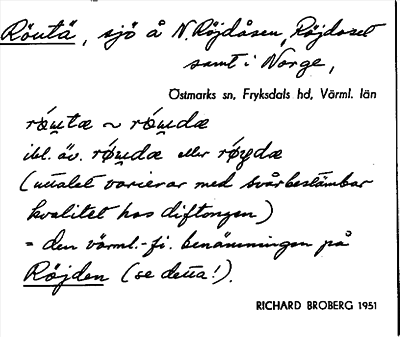 Röutä, sjö å N. Röjdåsen, Röjdoset
samt i Norge,
Östmarks sn, Fryksdals hd, Värml. län
rǿu̯tæ ~ rǿu̯dæ
ibl. äv. rǿu̯dæ eller rǿydæ
(uttalet varierar med svårbestämbar
kvalitet hos diftongen)
= den värml.-fi. benämningen på
Röjden (se detta!).
RICHARD BROBERG 1951